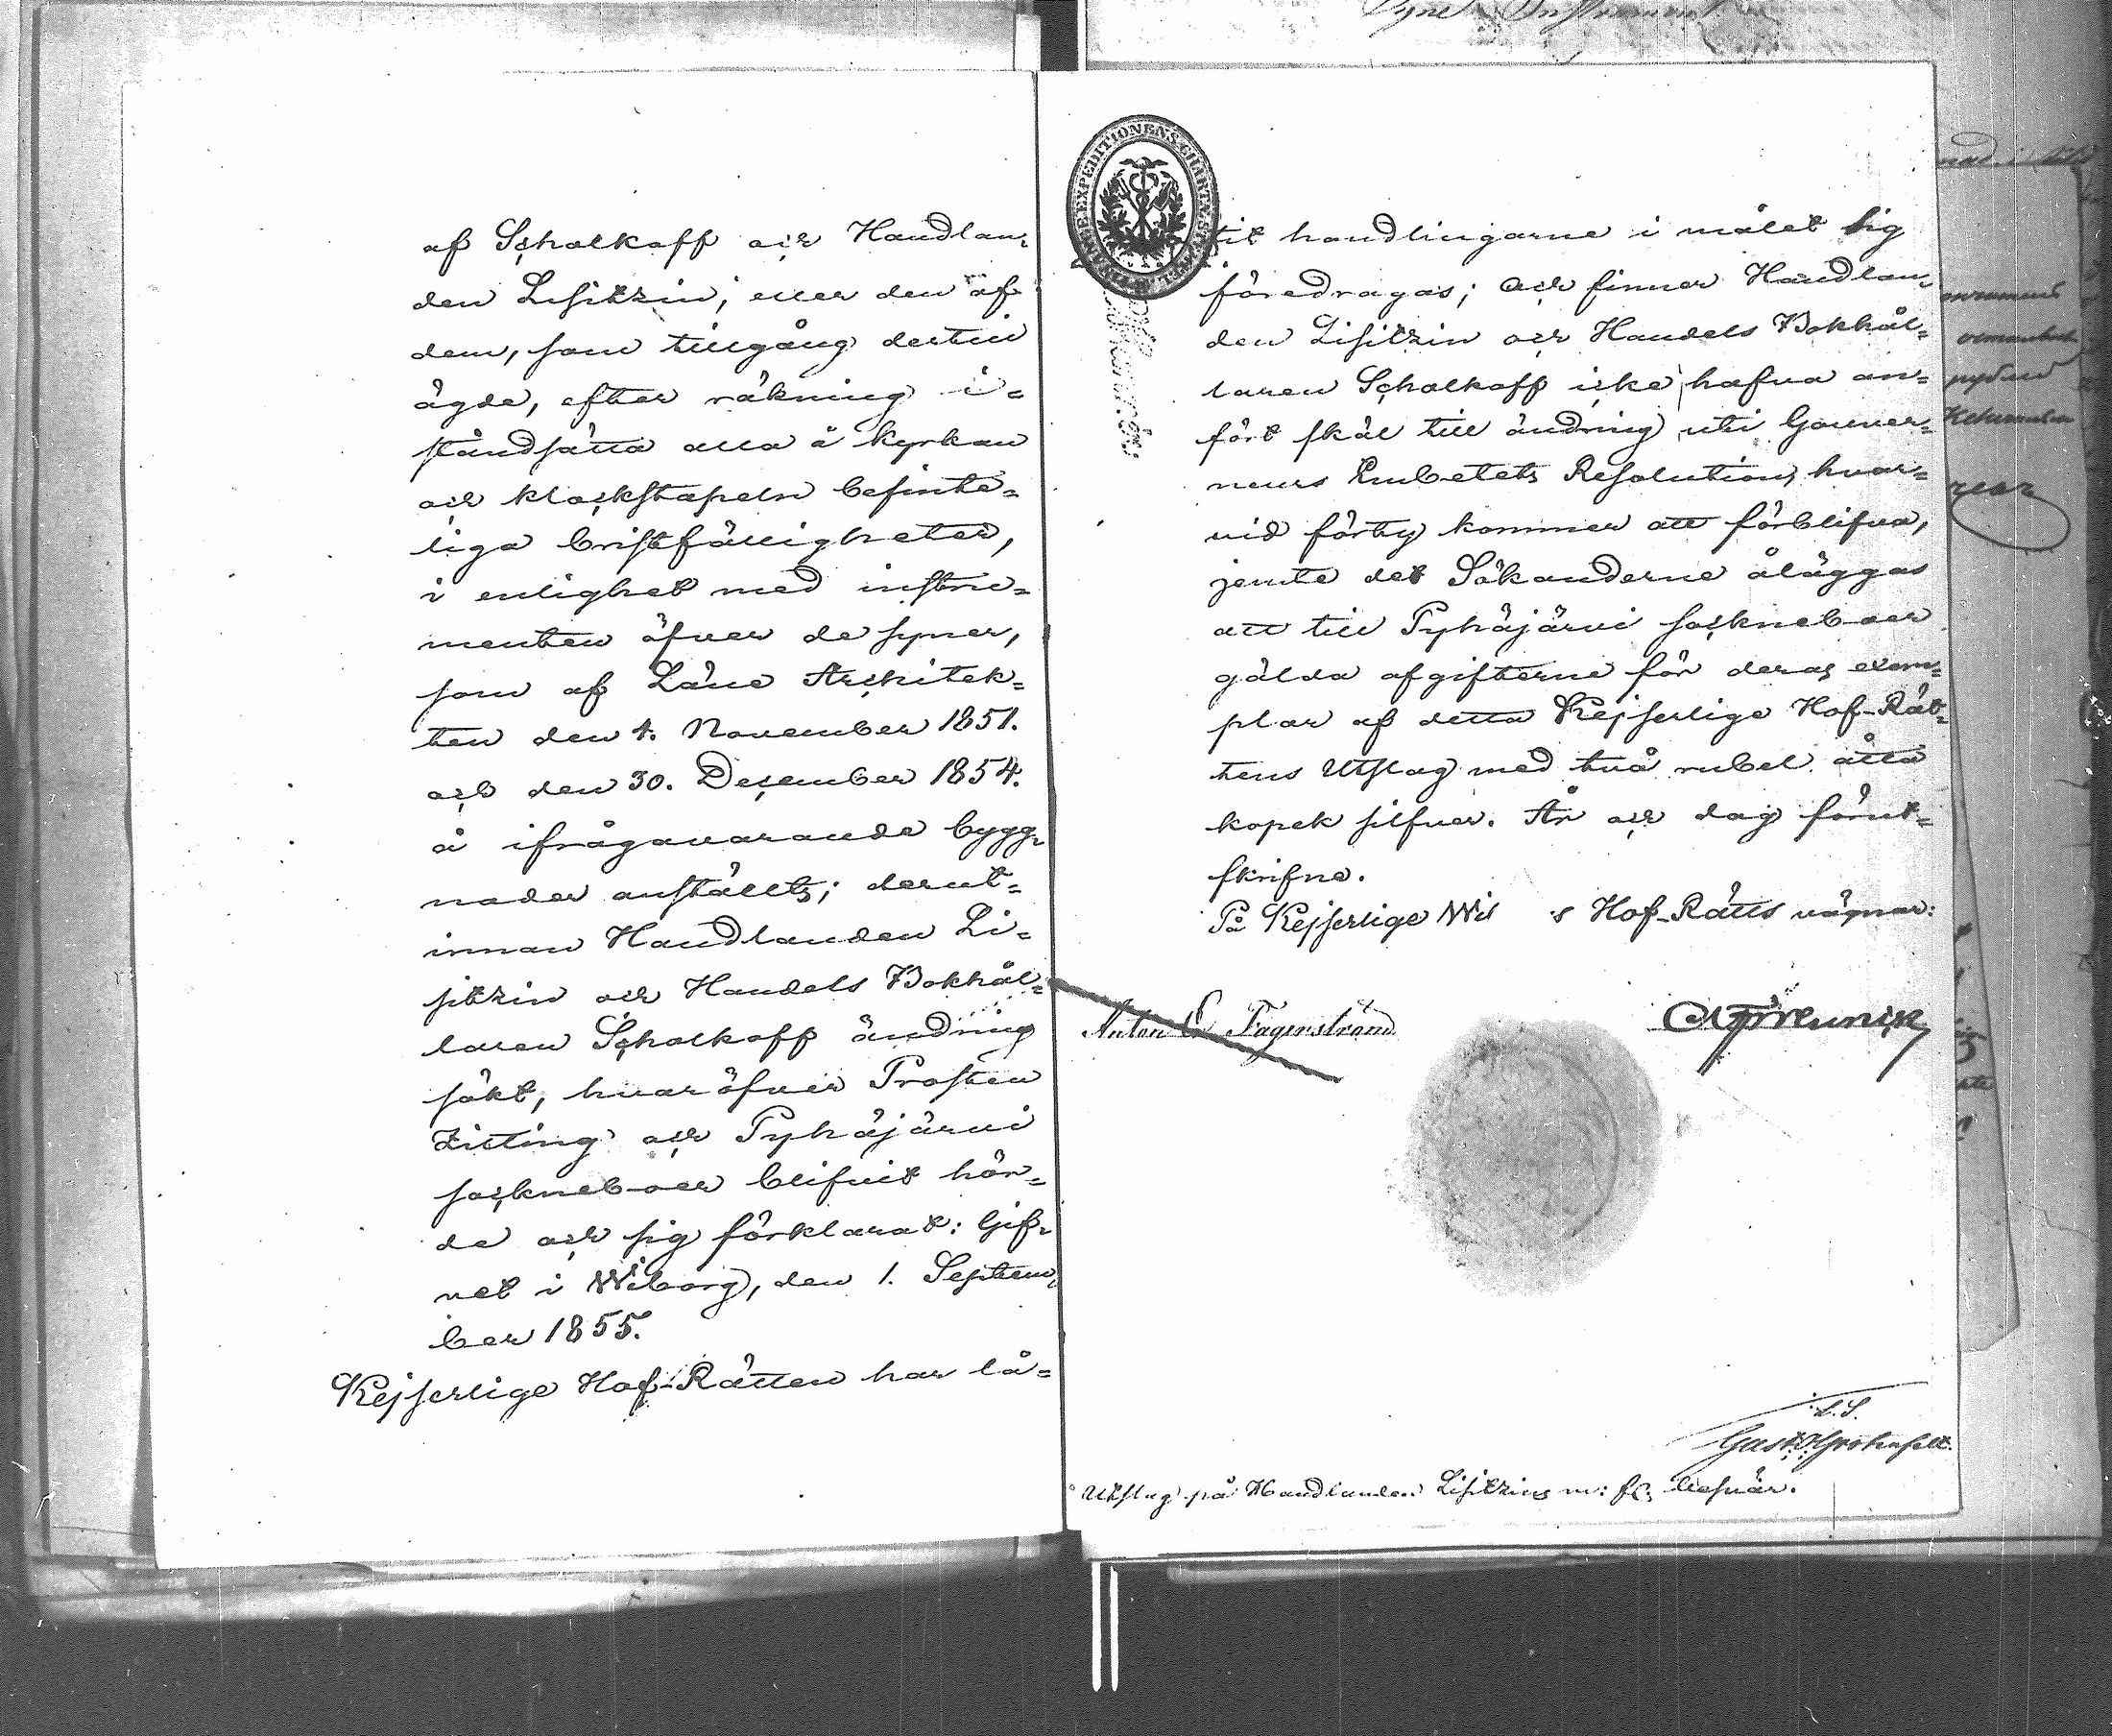 af Schalkoff och Handlan-
den Lisitzin, eller den af
dem, som tillgång dertill
ägde, efter räkning i-
ståndsätta alla å kyrkan
och klockstapeln befinte-
liga bristfälligheter,
i enlighet med instru-
menten öfver de syner,
som af Läns Architek-
ten den 1. November 1851.
och den 30. December 1854.
å ifrågavarande bygg-
nader anställts; derut-
innan Handlanden Li-
sitzin och Handels Bokhål-
laren Schalkoff ändring
sökt, hvaröfver Prosten
Zitting och Pyhäjärvi
sockneboer blifvit hör-
de och sig förklarat: Gif-
vet i Wiborg, den 1. Septem-
ber 1855.
Kejserlige Hof-Rätten har lå-
tit handlingarne i målet sig
föredragas; och finner Handlan-
den Lisitzin och Handels Bokhål-
laren Schalkoff icke hafva an-
fört skäl till ändring uti Gouver-
neurs Embetets Resolution, hvar-
vid förty kommer att förblifva,
jemte det Sökanderne åläggas
att till Pyhäjärvi sockneboer
gälda afgifterne för deras exem-
plar af detta Kejserlige Hof-Rät-
tens Utslag med två rubel åtta
kopek silfver. År och dag förut-
skrifne.
På Kejserlige Wi s Hof-Rätts vägnar:
Anton E Fagerström
L.S.
Gust Grotenfelt
Utslag på Handlanden Lisitzins m: fl: besvär.